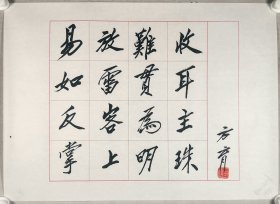 易放難收
如雷貫耳
反客為主
掌上明珠